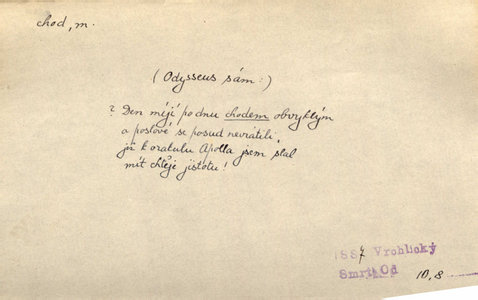 chod, m.
(Odysseus sám:)
? Den míjí po dnu chodem obvyklým
a poslové se posud nevrátili,
již k orakulu Apolla jsem slal
mít chtěje jistotu!
1887 Vrchlický
Smrt Od 10, 8